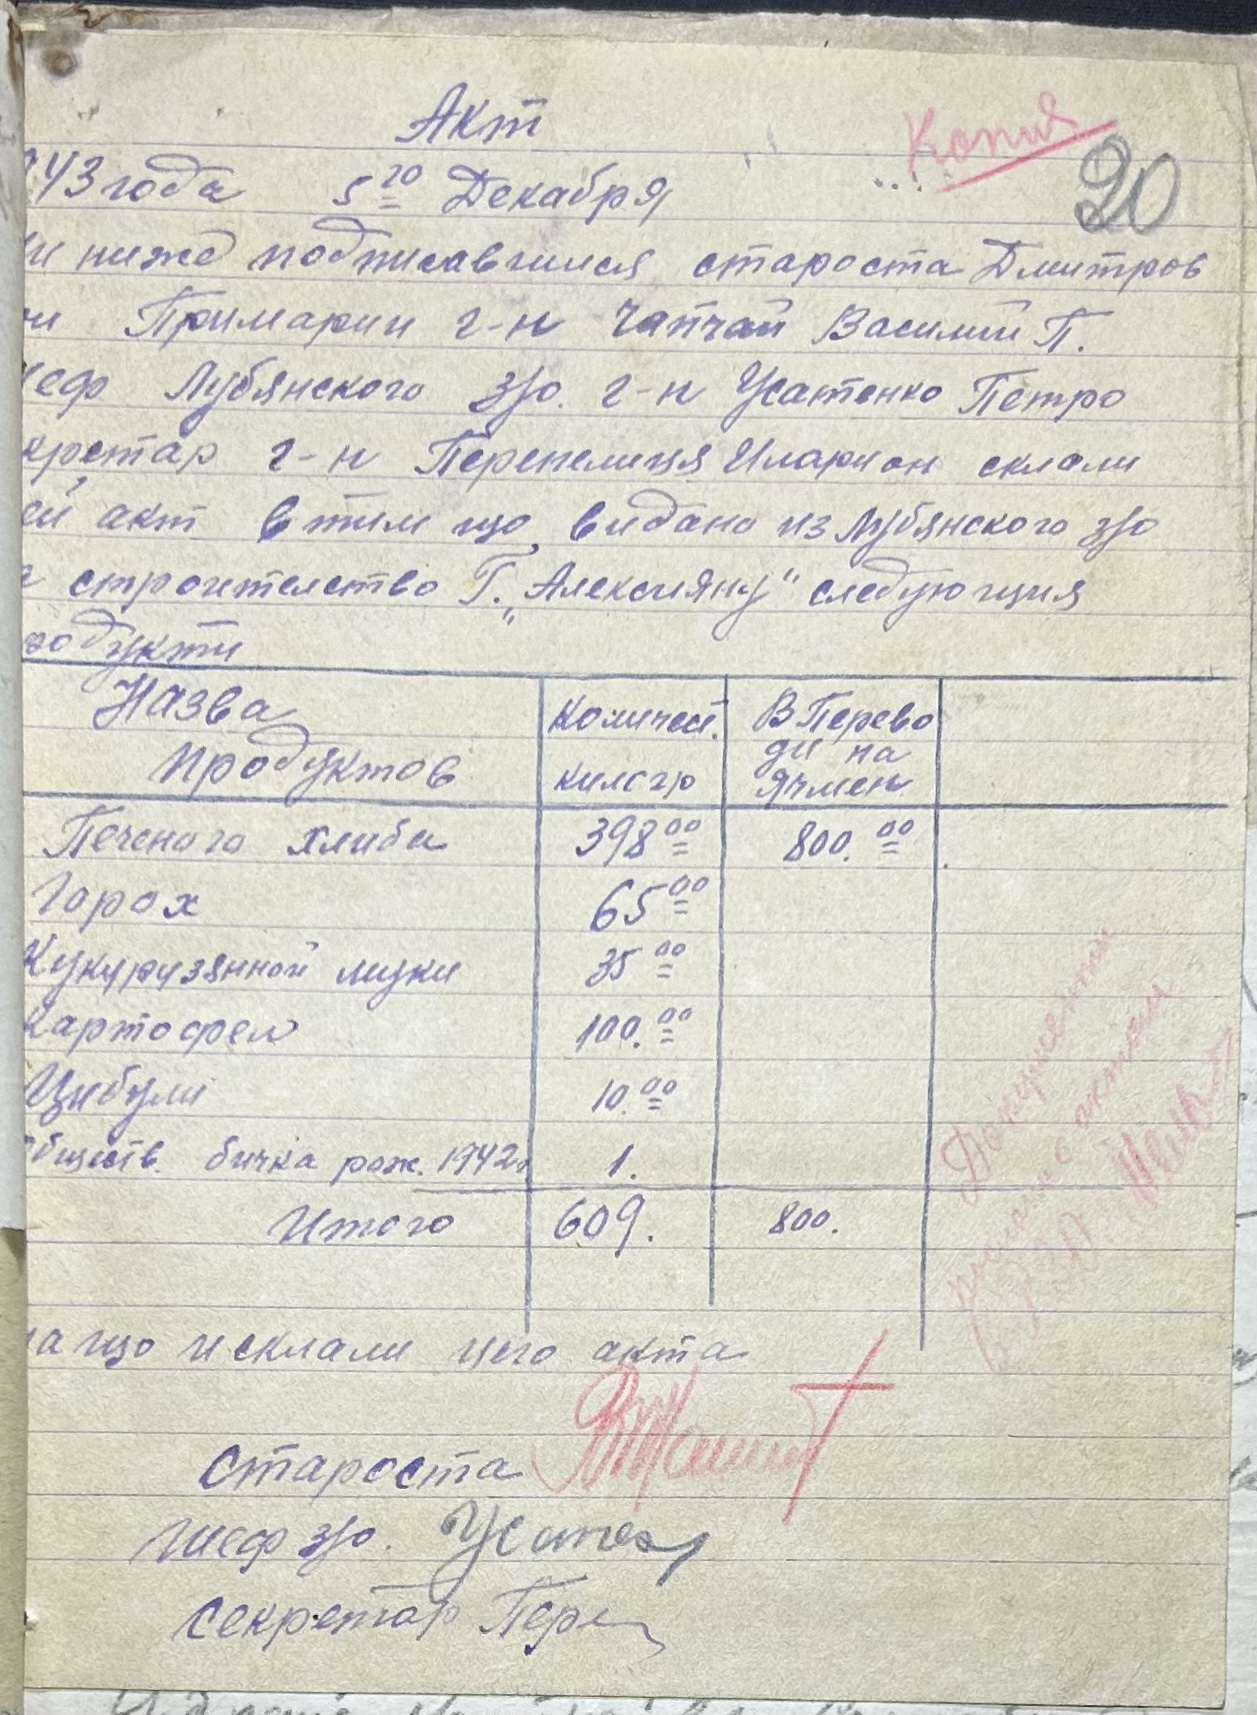 Акт
Копия
20
943 года 5го Декабря
ми ниже подписавшися староста Дмитров
Примарии г-н Чапчай Василий П.
шеф Лубянского з/о. г-н Усатенко Петро
кретар г-н Перепелиця Иларион склали
ей акт в тим що видано из Лубянского з/о
строителство Г. „Алексияну" следующия
родукти
Назва продуктов
Количест. килогр
В Перево
ди на
ячмен
Печеного хлиба 398 00 800. 00
Горох 65 00
Кукурузянной муки 35 00
Картофел 100. 00
Цибули 10. 00
Обществ. бичка рож. 1942г 1.
Итого 609. 800.
на що и склали цего акта
Документи
с актом
староста
шеф з/о. Усатен
секретар Пере